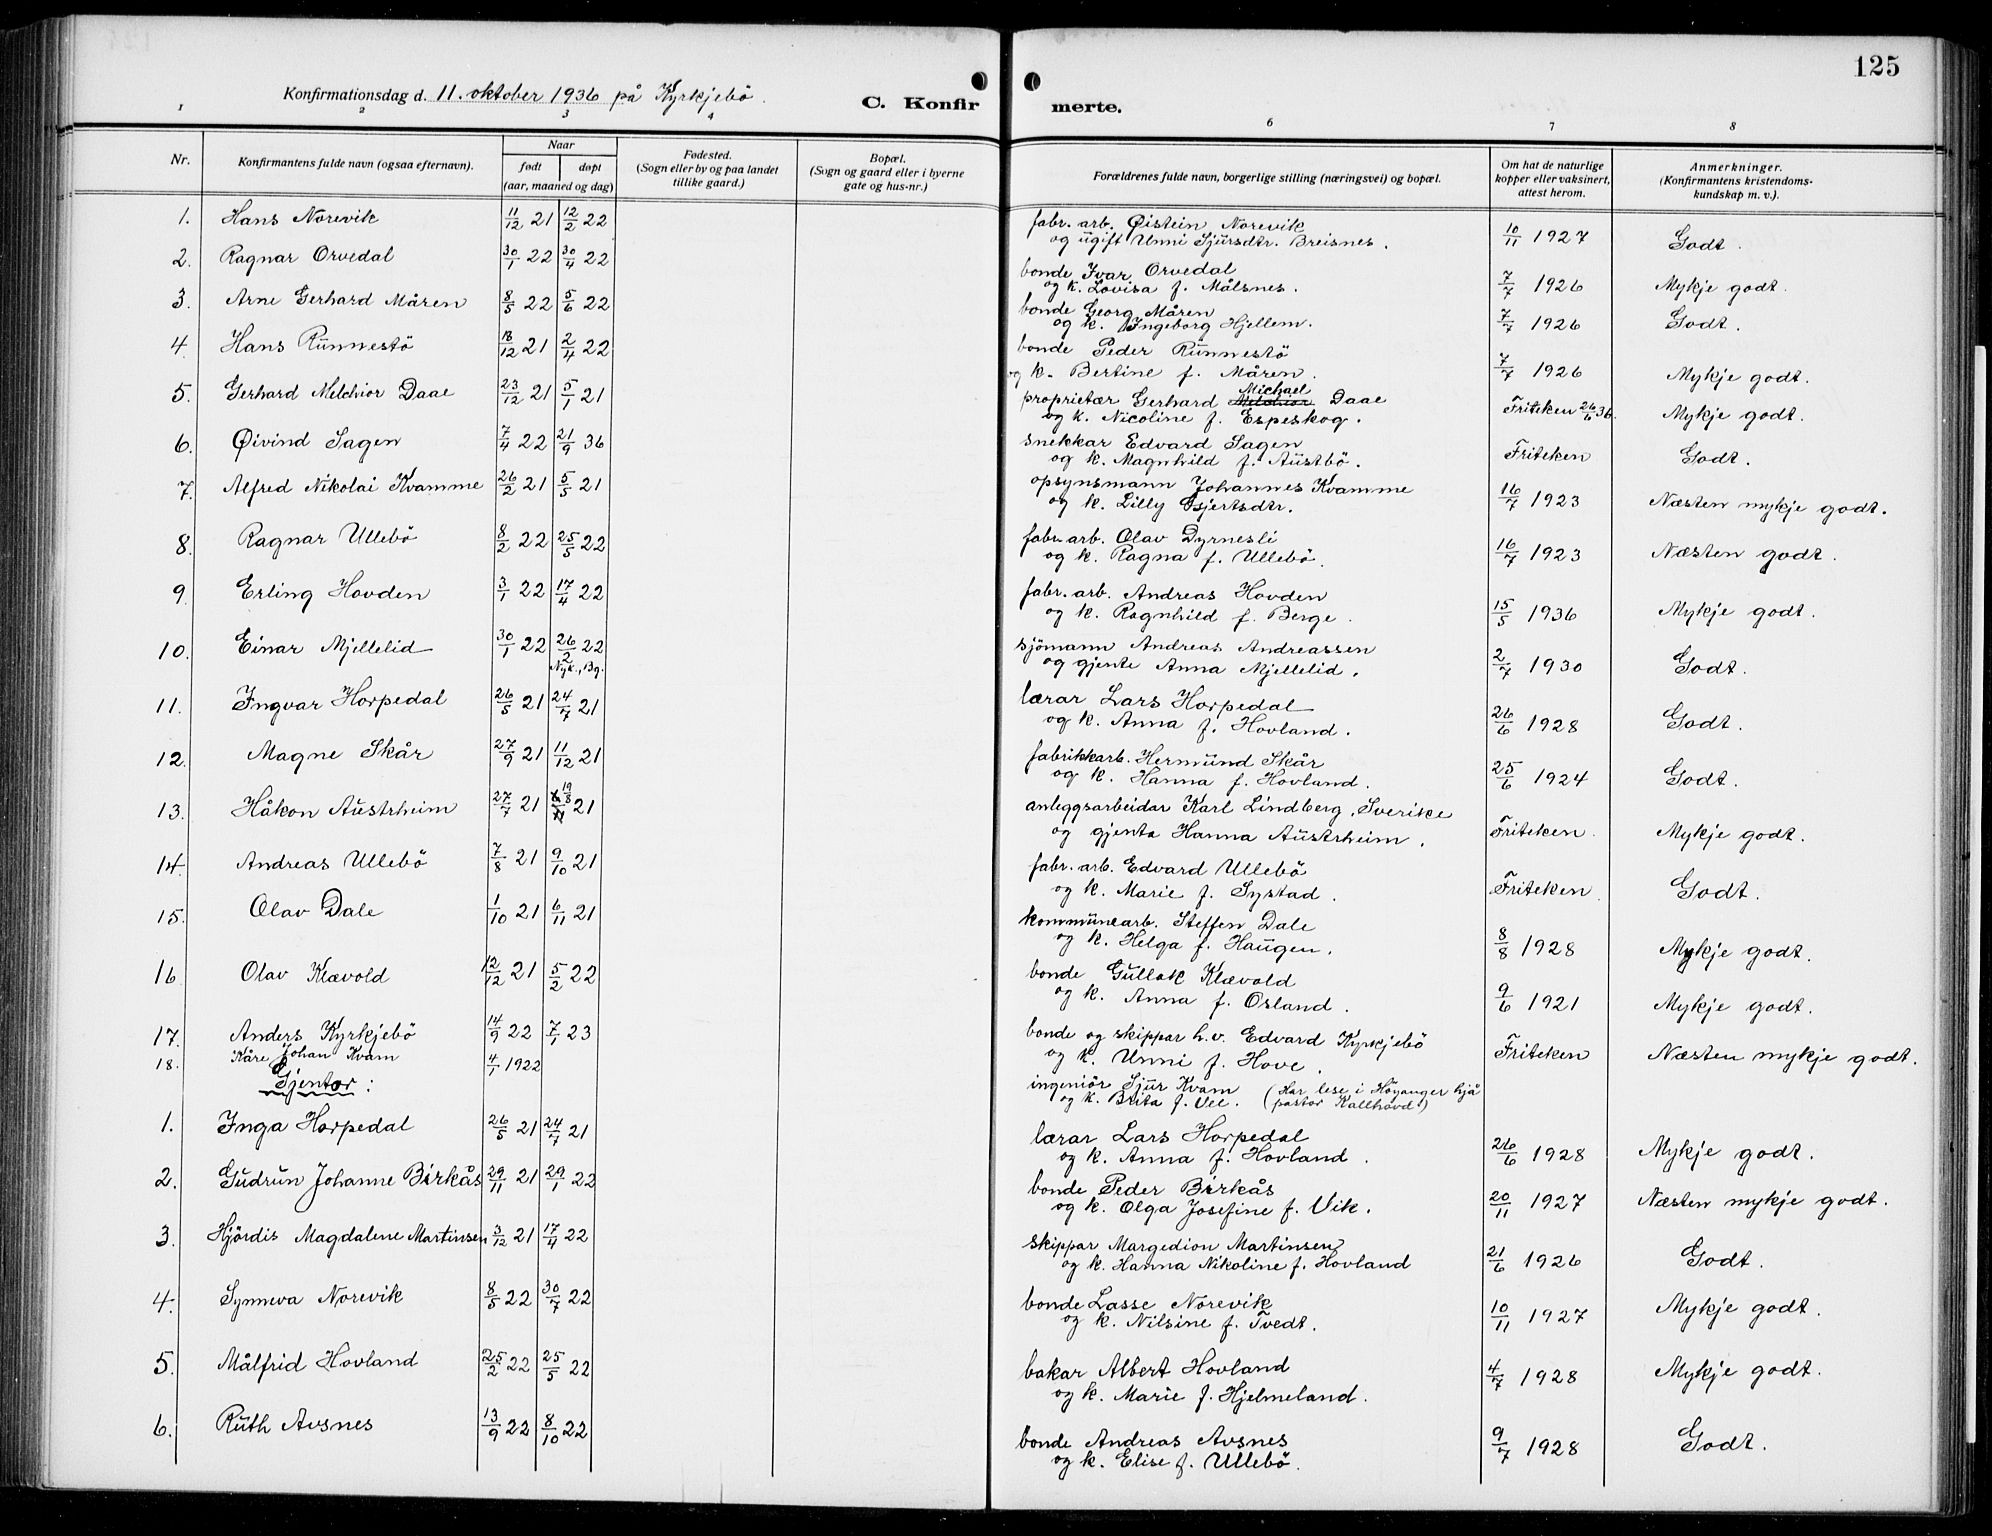 125
Konfirmationsdag d. 11. oktober 1936 på Kyrkjebö.
C. Konfir merte.
1 2 3 4 6 7 8
Nr. Konfirmantens fulde navn (ogsaa efternavn). Naar født døpt (aar, maaned og dag) Fødested. (Sogn eller by og paa landet tillike gaard.) Bopæl. (Sogn og gaard eller i byerne gate og hus-nr.) Forældrenes fulde navn, borgerlige stilling (næringsvei) og bopæl. Om hat de naturlige kopper eller vaksinert, attest herom. Anmerkninger. (Konfirmantens kristendoms-kundskap m. v.).
1. Hans Norevik 11/12 21 12/2 22 fabr. arb. Øistein Norevik
og ugift Unni Sjursdtr. Breisnes. 10/11 1927 Godt.
2. Ragnar Orvedal 30/1 22 30/4 22 bonde Ivar Orvedal
og k. Lovisa f. Målsnes. 7/7 1926 Mykje godt.
3. Arne Gerhard Måren 8/5 22 5/6 22 bonde Georg Måren
og k. Ingeborg Hjellem. 7/7 1926 Godt.
4. Hans Runnestö 18/12 21 2/4 22 bonde Peder Runnestö
og k. Bertine f. Måren. 7/7 1926 Mykje godt.
5. Gerhard Melchior Daae 23/12 21 5/1 21 proprietær Gerhard Melchior Michael Daae
og k. Nicoline f. Espeskog. Friteken 26/6 36. Mykje godt.
6. Øivind Sagen 7/4 22 21/9 36 snekkar Edvard Sagen
og k. Magnhild f. Austbö. Friteken Godt.
7. Alfred Nikolai Kvamme 26/2 21 5/5 21 opsynsmann Johannes Kvamme
og k. Lilly Gjertsdtr. 16/7 1923 Næsten mykje godt.
8. Ragnar Ullebö 8/2 22 25/5 22 fabr. arb. Olav Dyrnesli
og k. Ragna f. Ullebö. 16/7 1923 Næsten godt.
9. Erling Hovden 3/1 22 17/4 22 fabr. arb. Andreas Hovden
og k. Ragnhild f. Berge. 15/5 1936 Mykje godt.
10. Einar Mjellelid 30/1 22 26/2 22 Nyk., 13g. sjömann Andreas Andreassen
og gjente Anna Mjellelid. 2/7 1930 Godt.
11. Ingvar Horpedal 26/5 21 24/7 21 lærar Lars Horpedal
og k. Anna f. Hovland. 26/6 1928 Godt.
12. Magne Skår 27/9 21 11/12 21 fabrikkarb. Hermund Skår
og k. Hanna f. Hovland. 25/6 1924 Godt.
13. Håkon Austrheim 27/7 21 19/8 21 anleggsarbeidar Karl Lindberg, Sverike
og gjenta Hanna Austrheim. Friteken. Mykje godt.
14. Andreas Ullebö 7/8 21 9/10 21 fabr. arb. Edvard Ullebö
og k. Marie f. Systad. Friteken Godt.
15. Olav Dale 1/10 21 6/11 21 kommunearb. Steffen Dale
og k. Helga f. Haugen. 8/8 1928 Mykje godt.
16 Olav Klævold 12/12 21 5/2 22 bonde Gullak Klævold
og k. Anna f. Osland. 9/6 1921 Mykje godt.
17. Anders Kyrkjebö 14/9 22 7/1 23 bonde og skippar h.v. Edvard Kyrkjebö
og k. Unni f. Hove. Friteken Næsten mykje godt.
18. Kåre Johan Kvam 4/1 1922 ingeniör Sjur Kvam
og k. Brita f. Vee. (Har lese i Höyanger hjå pastor Kallhovd)
Gjentor:
1. Inga Horpedal 26/5 21 24/7 21 lærar Lars Horpedal
og k. Anna f. Hovland. 26/6 1928 Mykje godt.
2. Gudrun Johanne Birkås 29/11 21 29/1 22 bonde Peder Birkås
og k. Olga Josefine f. Vik. 20/11 1927 Næsten mykje godt.
3. Hjördis Magdalene Martinsen 3/12 21 17/4 22 skippar Margedion Martinsen
og k. Hanna Nikoline f. Hovland 21/6 1926 Godt.
4. Synneva Norevik 8/5 22 30/7 22 bonde Lasse Norevik
og k. Nilsine f. Tvedt. 10/11 1927 Mykje godt.
5. Målfrid Hovland 25/2 22 25/5 22 bakar Albert Hovland
og k. Marie f. Hjelmeland. 4/7 1928 Mykje godt.
6. Ruth Avsnes 13/9 22 8/10 22 bonde Andreas Avsnes
og k. Elise f. Ullebö. 9/7 1928 Godt.